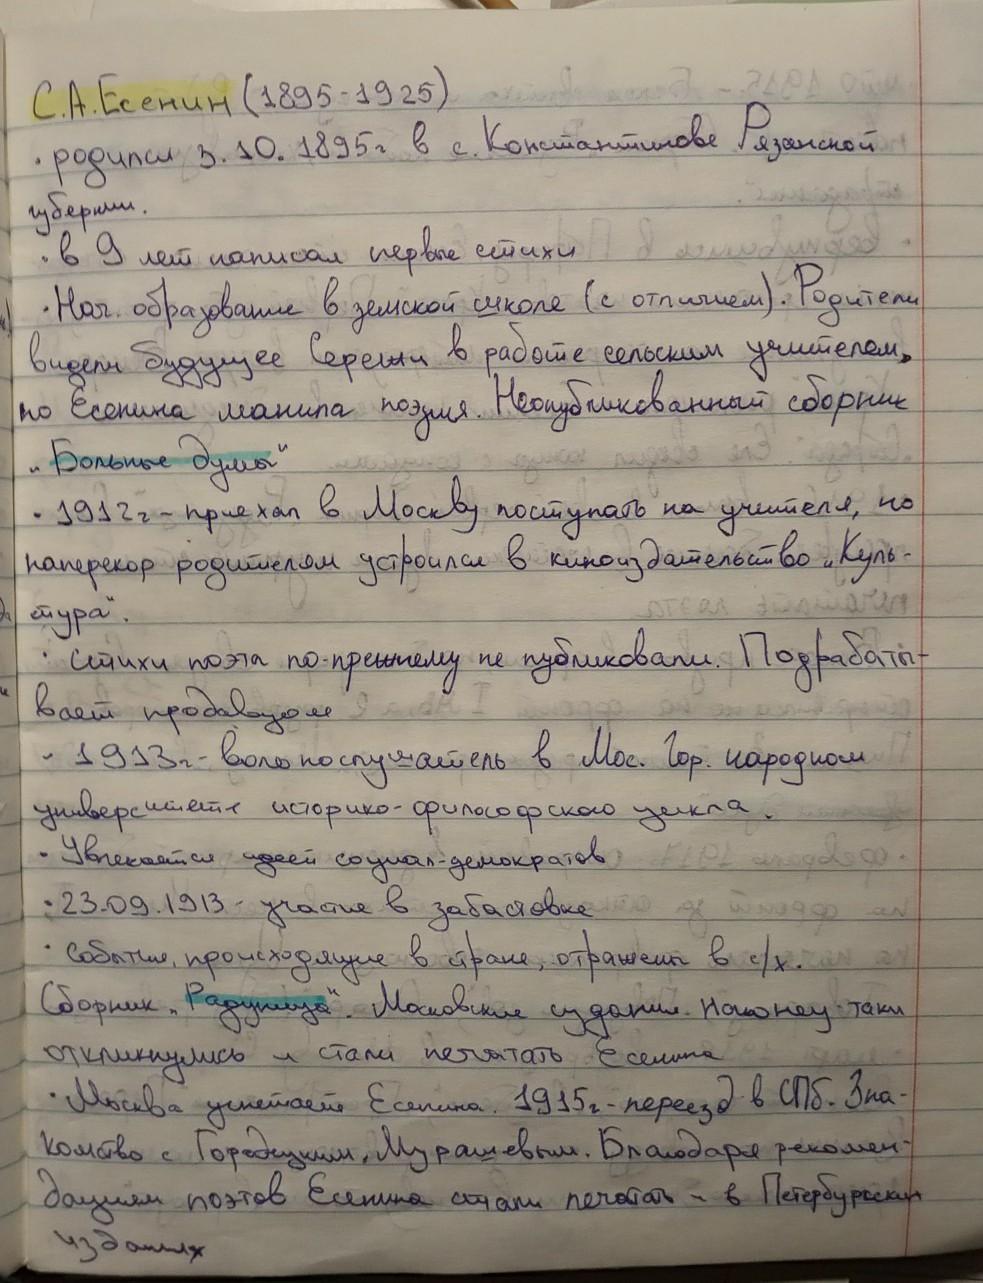 С.А.Есенин (1895-1925)
· родился 3.10.1895г в с. Константинове Рязанской
губернии.
· в 9 лет написал первые стихи
· Нач. образование в земской школе (с отличием). Родители
видели будущее Сережи в работе сельским учителем,
но Есенина манила поэзия. Неопубликованный сборник
„Больные думы"
· 1912г - приехал в Москву поступать на учителя, но
наперекор родителям устроился в киноиздательство „Куль-
тура".
· Стихи поэта по-прежнему не публиковали. Подрабаты-
вает продавцом
· 1913г - вольнослушатель в Мос. Гор. народном
университете историко-философского цикла.
· Увлекается идеей социал-демократов
· 23.09.1913 - участие в забастовке
· События, происходящие в стране, отражены в с/х.
Сборник „Радуница". Московские издания наконец-таки
откликнулись и стали печатать Есенина
· Москва угнетает Есенина. 1915г - переезд в СПб. Зна-
комство с Городецким, Мурашевым. Благодаря рекомен-
дациям поэтов Есенина стали печатать - в Петербургских
изданиях